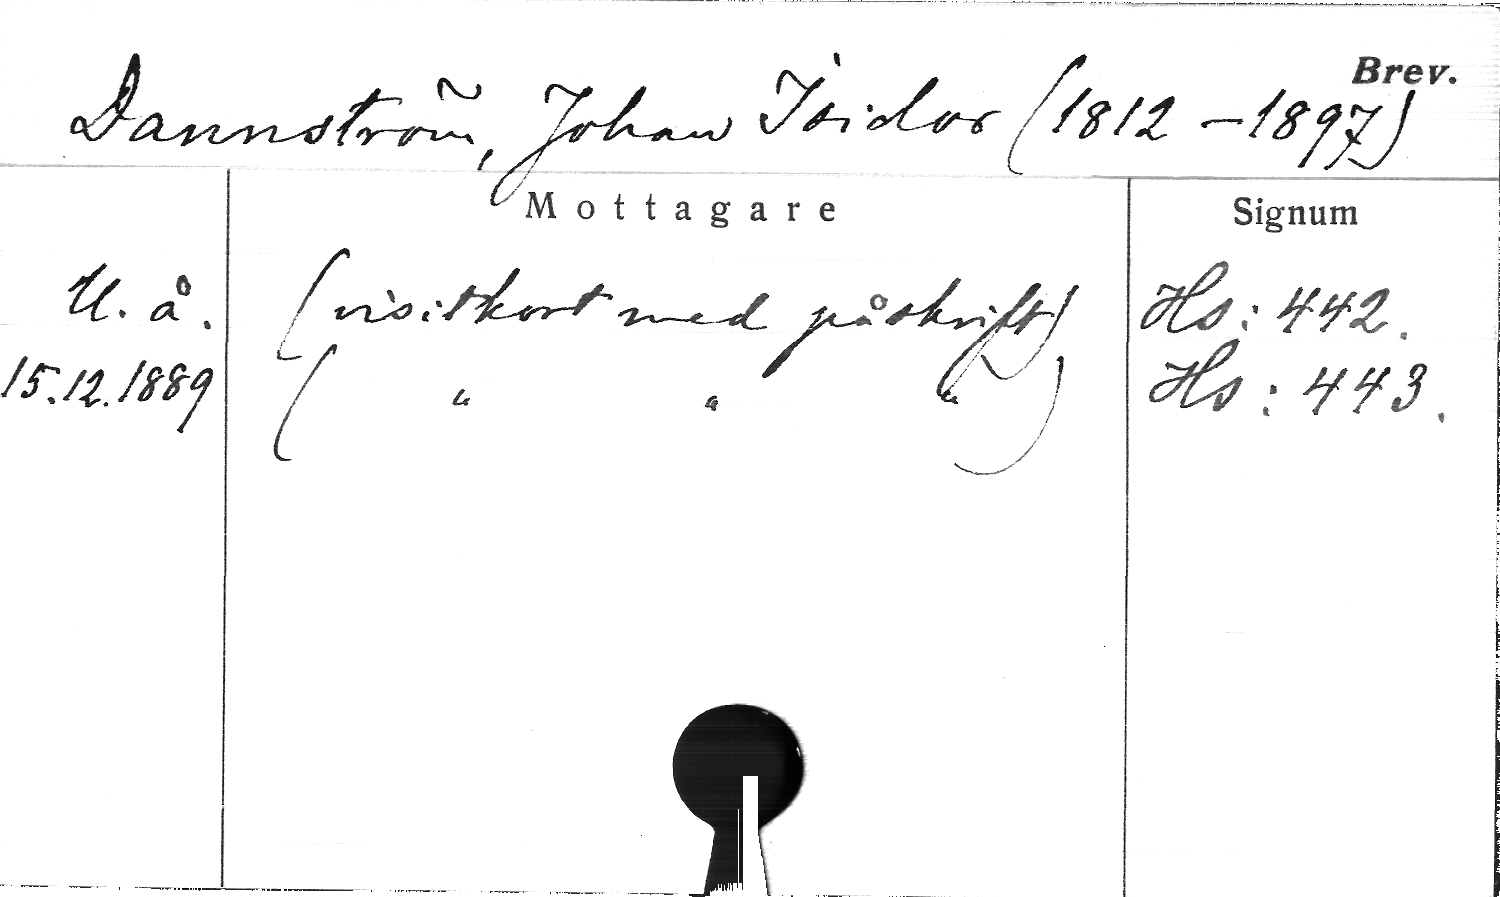 Brev.
Dannström, Johan Isidor (1812 – 1897)
Mottagare Signum
U. å. (visitkort med påskrift) Hs: 442.
15.12.1889 ( " " " ) Hs: 443.